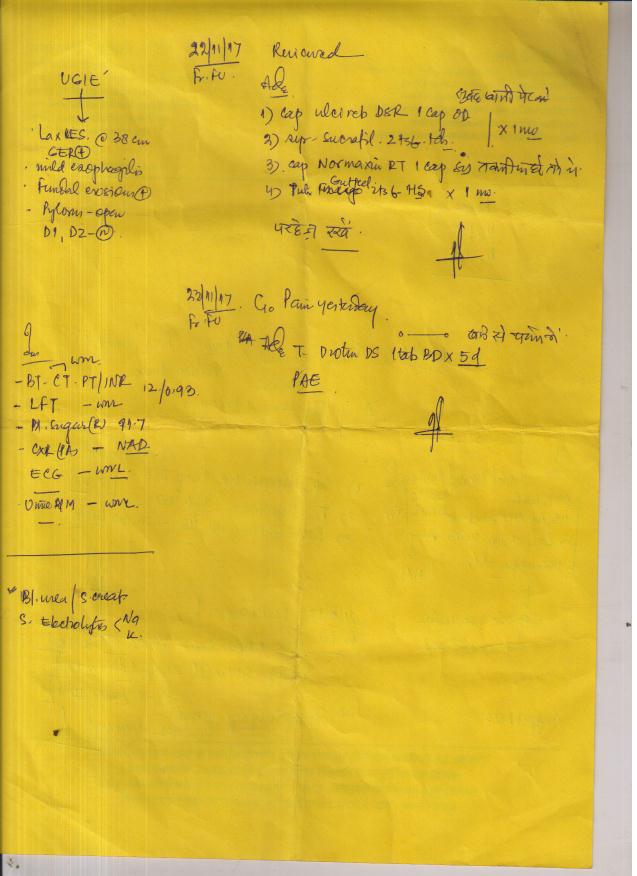 22/11/17 Reviewed
Fr. FU.
UGIE
Adv
सुबह खाली पेट
1) cap ulcireb DSR 1 cap OD
2) syr- Sucrafil . 2tsf. tds. | x 1 mo
3) cap Normaxin RT 1 cap
4) 2tsf HS x 1 mo.
परहेज रखें.
Lax LES. @ 38 cm
GER (+)
· mild esophagitis
· Fundal erosions (+)
· Pylorus - open
D1, D2 - (N)
23/11/17. C/o Pain yesterday.
Fr. FU
Adv T. Drotin DS 1 tab BD x 5d
PAE
WNL
- BT- CT- PT/INR 12/0.93.
- LFT - WNL
- Bl. Sugar (R) 91.7
- CXR (PA) - NAD
ECG - WNL.
- Urine R/M - WNL.
* Bl. urea / S. creat
S. Electrolytes < Na
K.